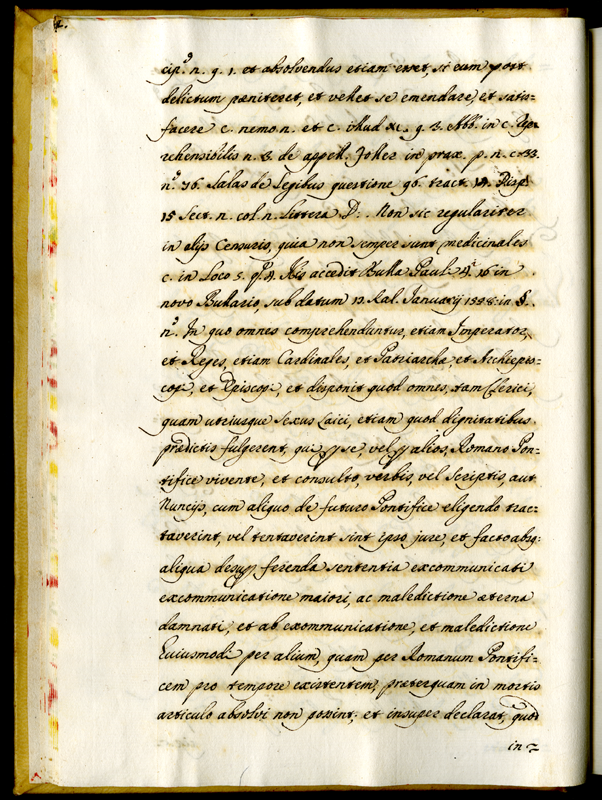 cip.º n. g. 1. et absolvendus etiam esset, si eum post
delictum pæniteret, et vellet se emendare, et satis-
facere c. nemo n. et c. illud xi. q. 3. Abb. in c. Re-
prehensibilis n. 3. de appell. in prax. p. n. c. 33.
n.º 76. Salas de Legibus questione 96. tract. 14. Disp.
15 Sect. n. col. n. Littera D: . Non sic regulariter
in alijs Censuris, quia non semper sunt medicinales
c. in Loco 5. q. 4. His accedit Bulla Pauli 4.i 16 in
novo Bullario, sub datum Kal. Januarij 1558: in §.
n.º In quo omnes comprehenduntur, etiam Imperator,
et Reges, etiam Cardinales, et Patriarchæ, et Archiepis-
copi, et Episcopi, et disponit quod omnes, tam Clerici,
quam utriusque sexus Laici, etiam quod dignitatibus
prædictis fulgerent, qui per se, vel per alios, Romano Pon-
tifice vivente, et consulto, verbis, vel scriptis, aut
Nuncijs, cum aliquo de futuro Pontifice eligendo trac-
taverint, vel tentaverint sint ipso jure, et facto absq:
aliqua desuper ferenda sententia excommunicati
excommunicatione maiori, ac maledictione æterna
damnati, et ab excommunicatione, et maledictione
huiusmodi per alium, quam per Romanum Pontifi-
cem pro tempore existentem, præterquam in mortis
articulo absolvi non possint: et insuper declarat, quod
in 2